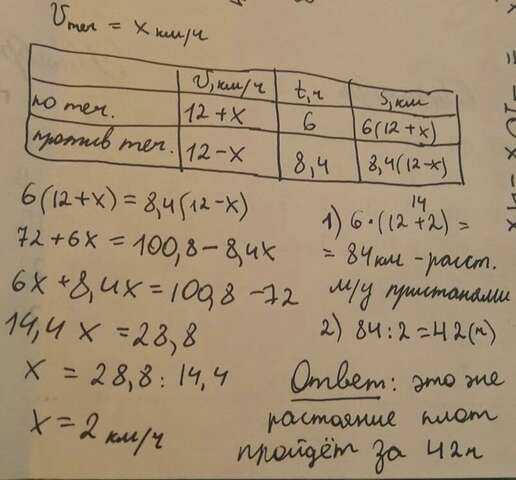 Vтеч = x км/ч
V, км/ч t, ч S, км
по теч. 12+x 6 6(12+x)
против теч. 12-x 8,4 8,4(12-x)
6(12+x)=8,4(12-x)
72+6x=100,8-8,4x
6x+8,4x=100,8-72
14,4x=28,8
x=28,8:14,4
x=2 км/ч
14
1) 6·(12+2)=
=84км-расст.
м/у пристанями
2) 84:2=42(ч)
Ответ: это же
растояние плот
пройдёт за 42ч